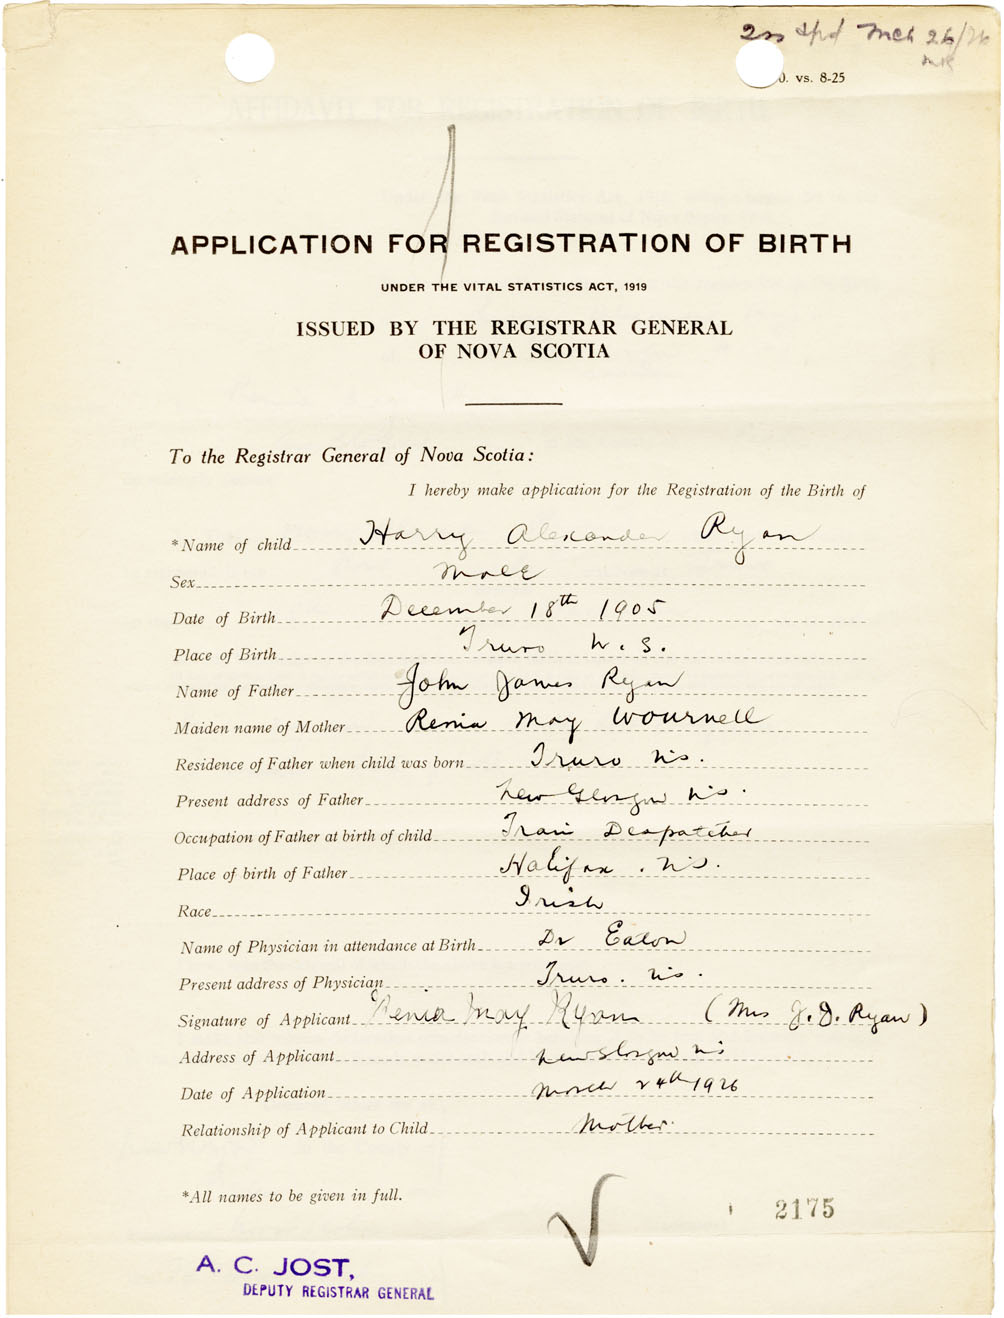 Mch 26/26
0. vs. 8-25
APPLICATION FOR REGISTRATION OF BIRTH
UNDER THE VITAL STATISTICS ACT, 1919
ISSUED BY THE REGISTRAR GENERAL
OF NOVA SCOTIA
To the Registrar General of Nova Scotia:
I hereby make application for the Registration of the Birth of
*Name of child Harry Alexander Ryan
Sex Male
Date of Birth December 18th 1905
Place of Birth Truro N. S.
Name of Father John James Ryan
Maiden name of Mother Renia May Wournell
Residence of Father when child was born Truro N.S.
Present address of Father New Glasgow N.S.
Occupation of Father at birth of child Train Despatcher
Place of birth of Father Halifax. N.S.
Race Irish
Name of Physician in attendance at Birth Dr Eaton
Present address of Physician Truro. N.S.
Signature of Applicant Renia May Ryan (Mrs J. J. Ryan)
Address of Applicant New Glasgow NS
Date of Application March 24th 1926
Relationship of Applicant to Child Mother
*All names to be given in full.
2175
A. C. JOST,
DEPUTY REGISTRAR GENERAL